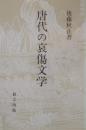 後藤秋正著
唐代の哀傷文学
研文出版